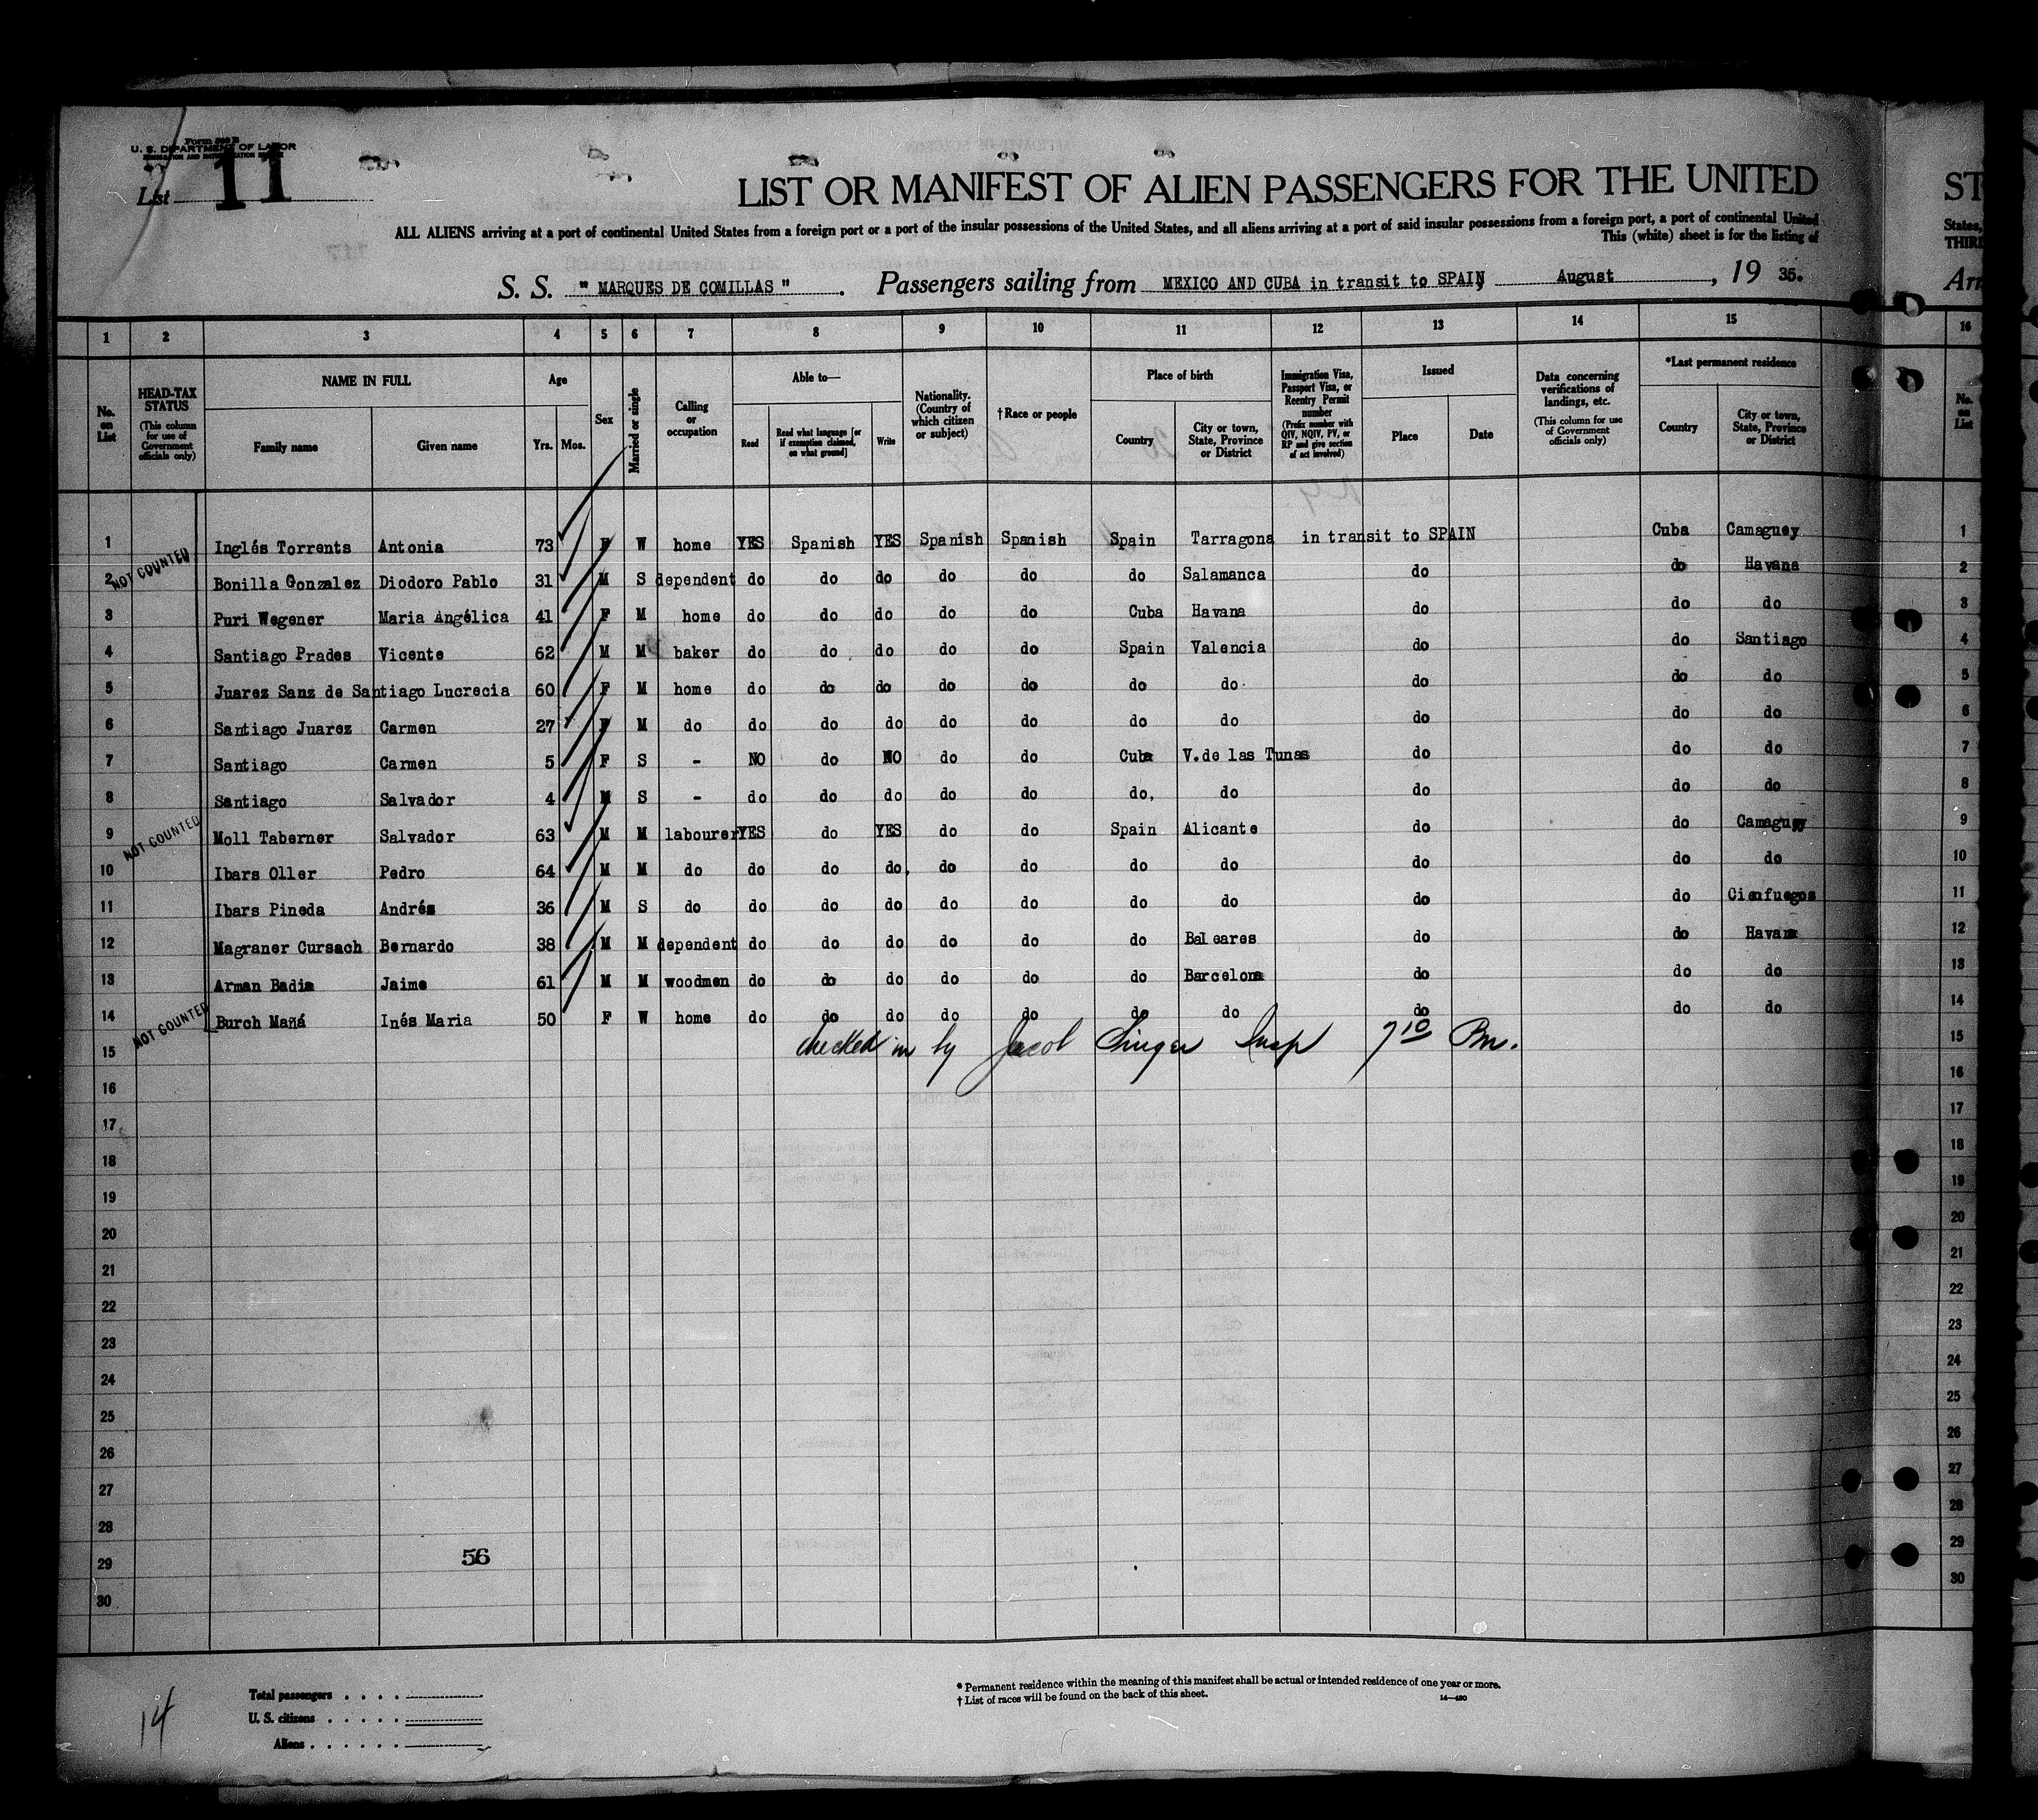 Form 500 B
U. S. DEPARTMENT OF LABOR
IMMIGRATION AND NATURALIZATION SERVICE
List 11
LIST OR MANIFEST OF ALIEN PASSENGERS FOR THE UNITED
ALL ALIENS arriving at a port of continental United States from a foreign port or a port of the insular possessions of the United States, and all aliens arriving at a port of said insular possessions from a foreign port, a port of continental United
This (white) sheet is for the listing of
S. S. " MARQUES DE COMILLAS ". Passengers sailing from MEXICO AND CUBA in transit to SPAIN August , 19 35.
ST
States,
THIRD
Arr
1 2 3 4 5 6 7 8 9 10 11 12 13 14 15 16
No. on List
HEAD-TAX STATUS (This column for use of Government officials only)
NAME IN FULL
Family name Given name
Age
Yrs. Mos.
Sex
Married or single
Calling or occupation
Able to—
Read Read what language [or if exemption claimed, on what ground] Write
Nationality. (Country of which citizen or subject)
†Race or people
Place of birth
Country City or town, State, Province or District
Immigration Visa, Passport Visa, or Reentry Permit number (Prefix number with QIV, NQIV, PV, or RP and give section of act involved)
Issued
Place Date
Data concerning verifications of landings, etc. (This column for use of Government officials only)
*Last permanent residence
Country City or town, State, Province or District
No. on List
1 Inglés Torrents Antonia 73 F W home YES Spanish YES Spanish Spanish Spain Tarragona in transit to SPAIN Cuba Camaguey 1
NOT COUNTED
2 Bonilla Gonzalez Diodoro Pablo 31 M S dependent do do do do do do Salamanca do do Havana 2
3 Puri Wegener Maria Angélica 41 F M home do do do do do Cuba Havana do do do 3
4 Santiago Prades Vicente 62 M M baker do do do do do Spain Valencia do do Santiago 4
5 Juarez Sanz de Santiago Lucrecia 60 F M home do do do do do do do do do do 5
6 Santiago Juarez Carmen 27 F M do do do do do do do do do do do 6
7 Santiago Carmen 5 F S - NO do NO do do Cuba V.de las Tunas do do do 7
8 Santiago Salvador 4 M S - do do do do do do, do do do do 8
9 Moll Taberner Salvador 63 M M labourer YES do YES do do Spain Alicante do do Camaguey 9
NOT COUNTED
10 Ibars Oller Pedro 64 M M do do do do, do do do do do do do 10
11 Ibars Pineda Andrés 36 M S do do do do do do do do do do Cienfuegos 11
12 Magraner Cursach Bernardo 38 M M dependent do do do do do do Baleares do do Havana 12
13 Arman Badia Jaime 61 M M woodmen do do do do do do Barcelona do do do 13
14 Burch Mañá Inés Maria 50 F W home do do do do do do do do do do 14
NOT COUNTED
15 checked in by Jacob Insp 7 10 Pm. 15
16 16
17 17
18 18
19 19
20 20
21 21
22 22
23 23
24 24
25 25
26 26
27 27
28 28
29 56 29
30 30
14
Total passengers . . . .
U. S. citizens . . . . .
Aliens . . . . . .
* Permanent residence within the meaning of this manifest shall be actual or intended residence of one year or more.
† List of races will be found on the back of this sheet. 14—480